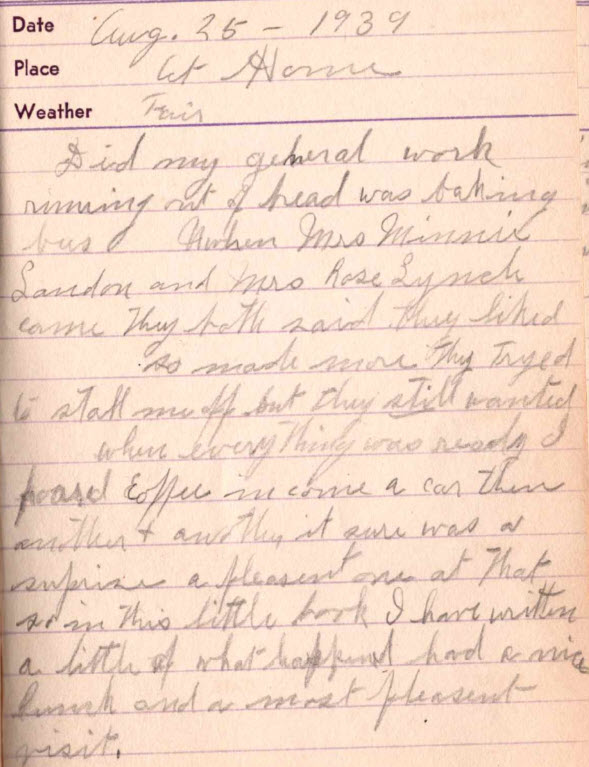 Date Aug. 25 - 1939
Place At Home
Weather Fair
Did my general work
running out of bread was baking
when Mrs Minnie
Landon and Mrs Rose Lynch
came they both said they liked
so made more they tryed
to stall me off but they still wanted
when everything was ready I
poard Coffee in come a car then
another + another it sure was a
suprise a pleasent one at that
so in this little book I have written
a little of what happend had a nice
lunch and a most pleasent
visit.